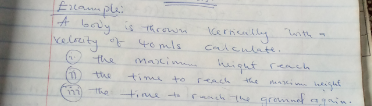 Example:
A body is thrown vertically with a
velocity of 40m/s calculate.
(i) the maximum height reach
(ii) the time to reach the maxim height
(iii) the time to reach the ground again.